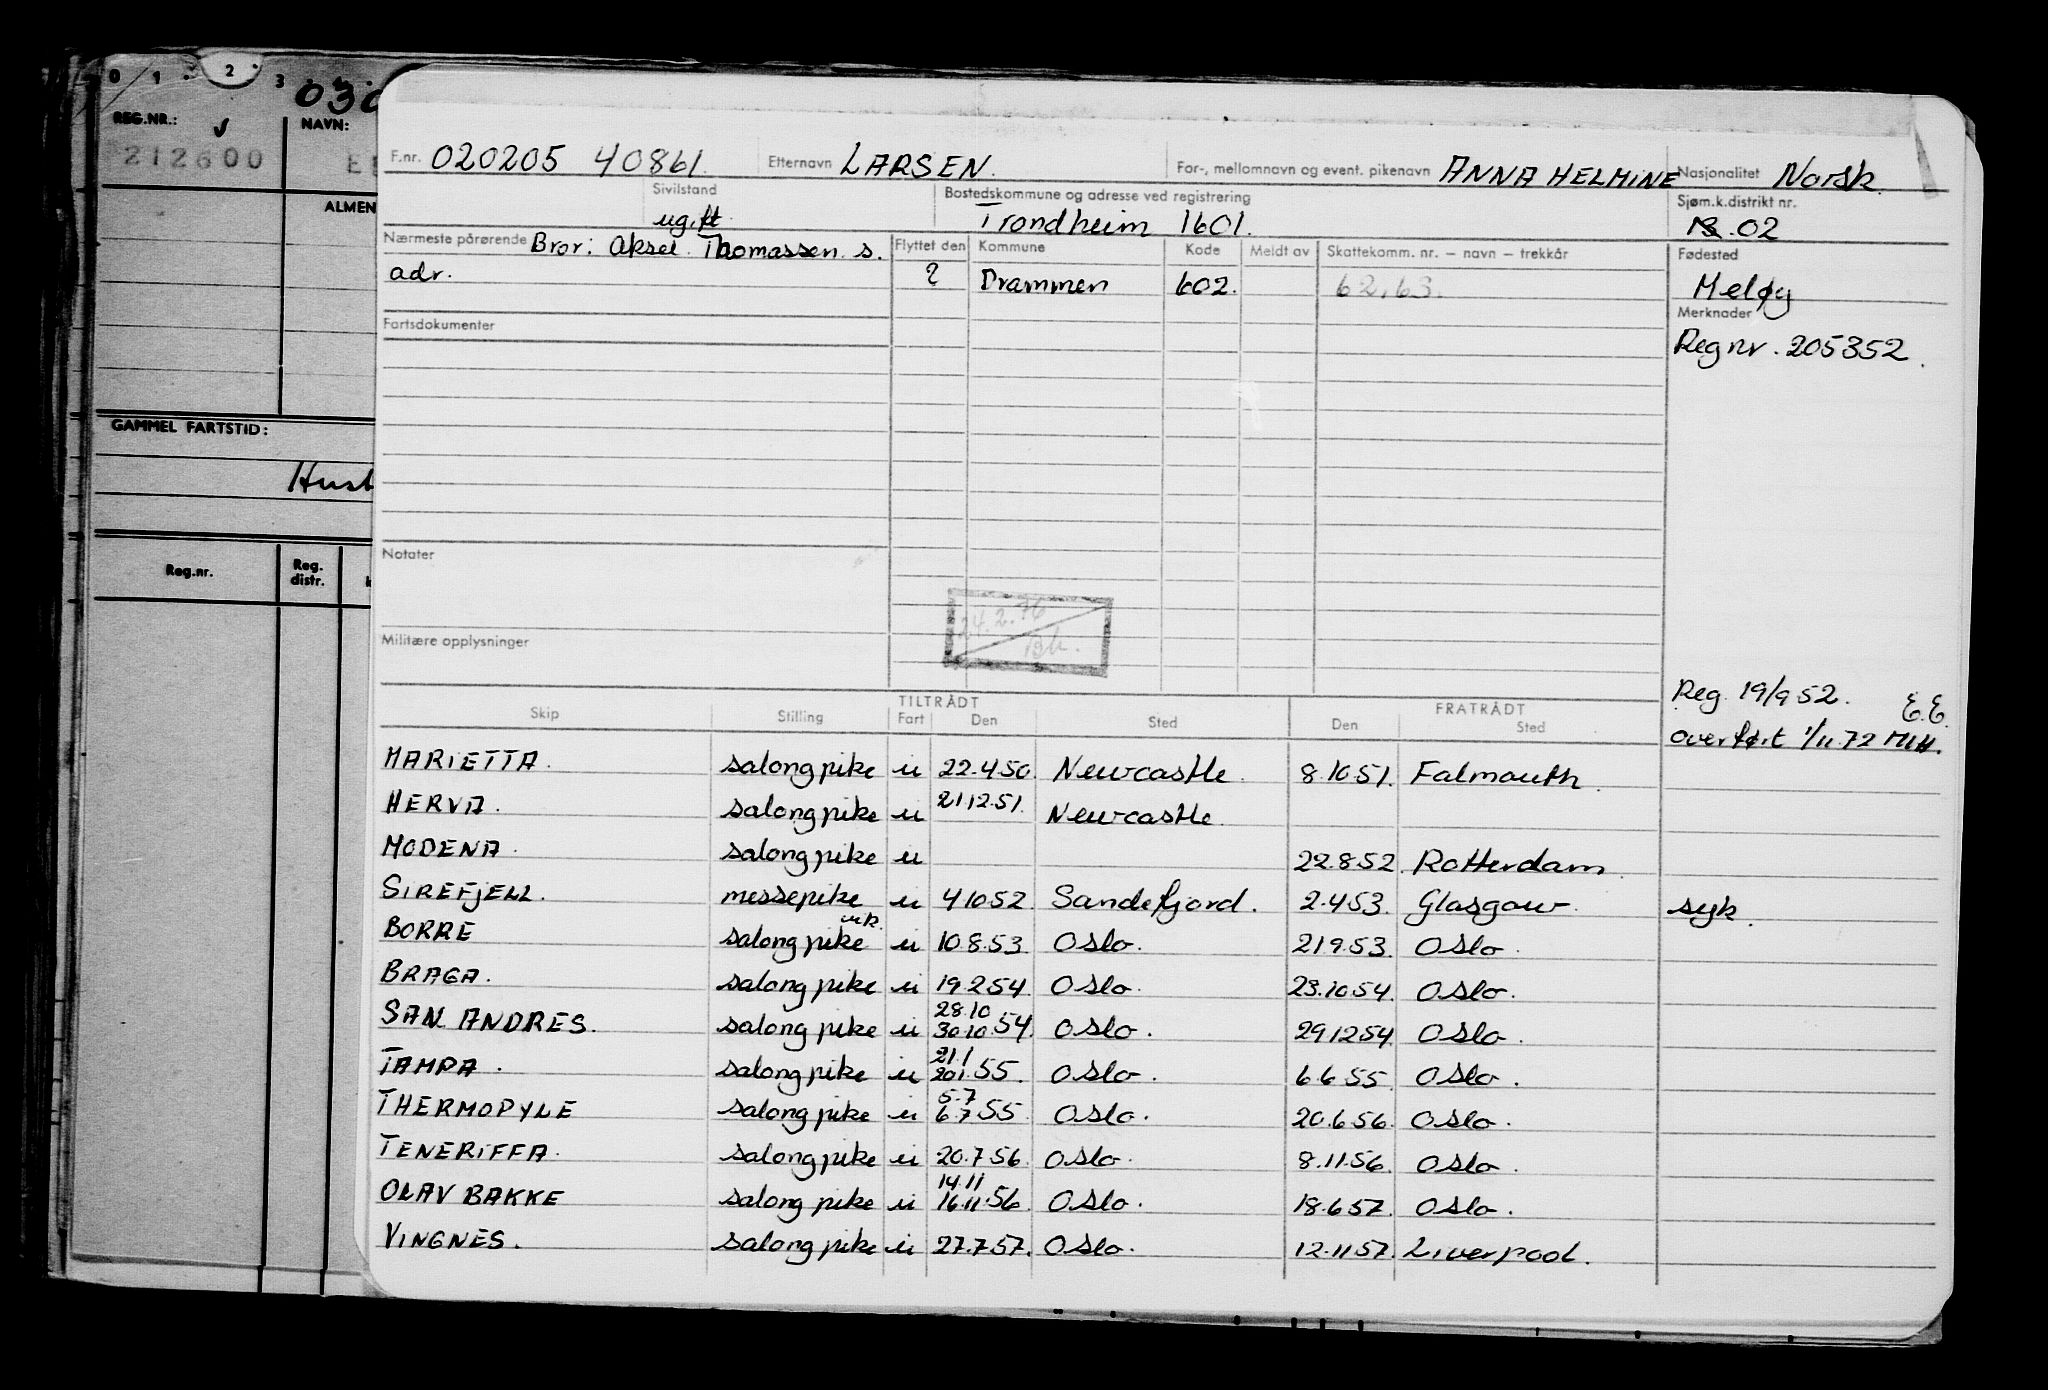 0 1 2 3
030
REG.NR.: NAVN:
212600
ALMEN
GAMMEL FARTSTID:
Reg.nr. Reg. distr.
F.nr. 020205 40861. Etternavn LARSEN. For-, mellomnavn og event. pikenavn ANNA HELMINE Nasjonalitet Norsk.
Sivilstand Bostedskommune og adresse ved registrering Sjøm.k.distrikt nr.
ugift Trondheim 1601. 02
Nærmeste pårørende Bror: Aksel Thomassen. s. Flyttet den Kommune Kode Meldt av Skattekomm. nr. – navn – trekkår Fødested
adr. ? Drammen 602. 62.63. Meløy
Fartsdokumenter Merknader
Reg nr. 205352.
Notater
24.2.76
Militære opplysninger
Reg. 19/9 52. E.E.
TILTRÅDT FRATRÅDT
Skip Stilling Fart Den Sted Den Sted
overført 1/11.72 MIH.
MARIETTA. salongpike u 22.4.50 Newcastle. 8.10.51. Falmouth.
HERVA. salongpike u 21.12.51. Newcastle
MODENA. salongpike u 22.8.52 Rotterdam.
SIREFJELL. messepike u 4.10.52 Sandefjord. 2.4.53. Glasgow. syk.
BORRE salongpike vik. u 10.8.53 Oslo. 21.9.53. Oslo.
BRAGA. salongpike u 19.2.54 Oslo. 23.10.54. Oslo.
28.10
SAN ANDRES. salongpike u 30.10.54. Oslo. 29.12.54 Oslo.
21.1
TAMPA. salongpike u 20.1.55. Oslo. 6.6.55 Oslo.
5.7
THERMOPYLE salongpike u 6.7.55. Oslo. 20.6.56. Oslo.
TENERIFFA. salongpike u 20.7.56. Oslo. 8.11.56. Oslo.
14.11
OLAV BAKKE salongpike u 16.11.56 Oslo. 18.6.57. Oslo.
VINGNES. salongpike u 27.7.57. Oslo. 12.11.57. Liverpool.